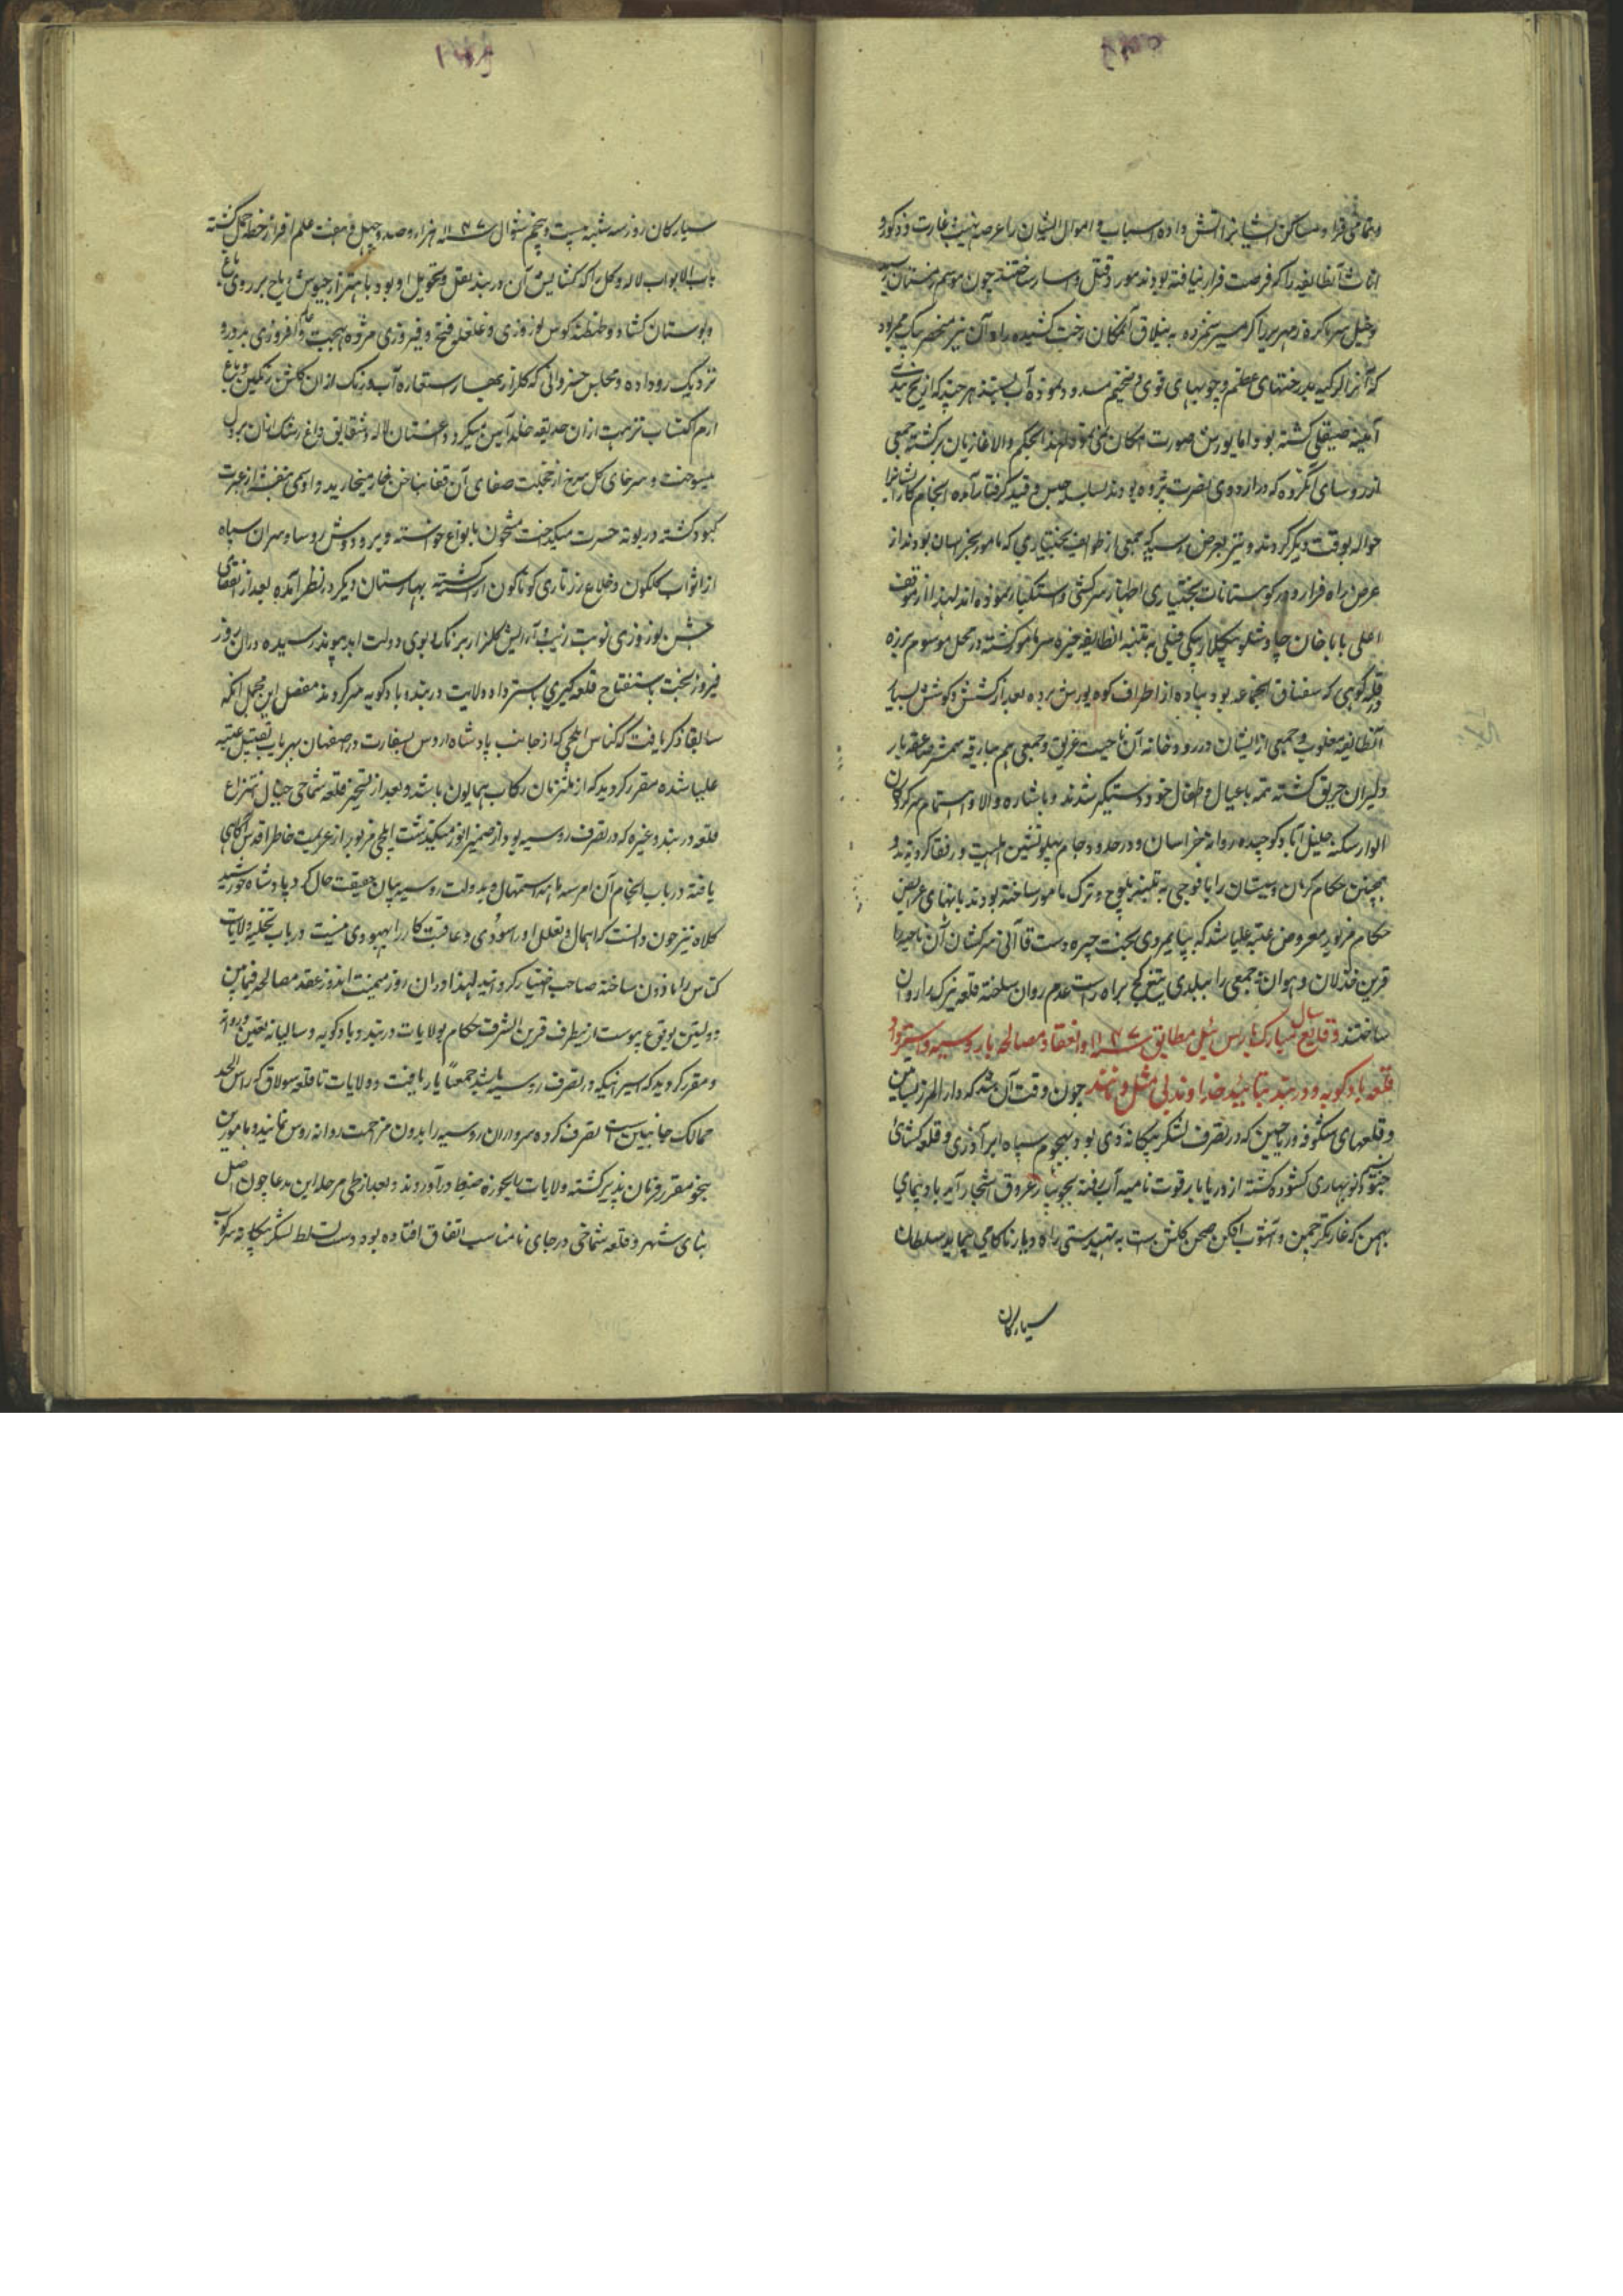 و تمامی قرا و مساکن ایشانرا آتش داده اسباب و اموال ایشان را عرصه نهب و غارت و ذکور و
اناث آنطایفه را که فرصت فرار نیافته بودند مورد قتل و اسار ساختند چون موسم زمستان
و خیل سرما کره زمهریر را کرمسیر شمرده به ییلاق آنمکان رخت کشیده راه آن نیز منحصر بیک
که آنرا اکراد بدرختهای عظیم و چوبهای قوی و ضخیم مسدود نموده آب بسته هر چند که از یخ بندی
آیینه صیقلی کشته بود اما یورش صورت امکان نمی نمود لهذا بحکم والا غازیان برکشته جمعی
از روسای آنکروه که در اردوی نصرت پژوه بودند بسلسله حبس و قید کرفتار آمده انجام کار ایشانرا
حواله بوقت دیکر کردند و نیز بعرض رسید که جمعی از طوایف بختیاری که مامور بخراسان بودند از
عرض راه فرار و در کوهستانات بختیاری اظهار سرکشی و استکبار نموده اند لهذا از موقف
اعلی بابا خان چاوشلو بیکلربیکی فیلی به تنبیه انطایفه خیره سر مامور کشته در محل موسوم
و قله کوهی که سقناق آنجماعه بود پیاده از اطراف کوه یورش برده بعد از کشش و کوشش بسیار
آنطایفه مغلوب و جمعی از ایشان در رودخانه آن ناحیت غریق و جمعی هم ببارقه شمشیر صاعقه بار
دلیران حریق کشته تتمه با عیال و اطفال خود دستکیر شدند و باشاره والا و اهتمام سرکردکان
الوار سکنه خلیل آباد کوچیده روانه خراسان و در حدود جام پهلو نشین اهلیت و رفقا کردیدند و
همچنین حکام کرمان و سیستان را با فوجی به تنبیه بلوچ و ترک مامور ساخته بودند بانهای عرایض
حکام مزبور معروض عتبه علیا شد که بپایمردی بخت چیره دست قاآنی سرکشان آن ناحیه را
قرین خذلان و هوان و جمعی را ببلدی تیغ کج براه راست عدم روان ساخته قلعه نیرک را روان
ساختند وقایع سال مبارک بارس ئیل مطابق سنه ۱۱۴۷ و انعقاد مصالحه با روسیه و استرداد
قلعه بادکوبه و دربند بتایید خداوند بی مثل و مانند چون وقت آن شد که دار المرز بساتین
و قلعهای شکوفه و ریاحین که در تصرف لشکر بیکانه دی بود بهجوم سپاه ابر آذری و قلعه کشائی
جنود نسیم نوبهاری کشوده کشته از دریابار قوت نامیه آب رفته بجویبار عروق اشجار آید بار و نمای
بهمن که غارتکر چمن و آشوب افکن صحن کلشن است به تهیدستی راه دیار ناکامی پیماید سلطان
سیارکان
سیارکان روز سه شنبه بیست و پنجم شوال سنه ۱۱۴۷ هزار و صد و چهل و هفت علم افراز خطه حمل کشته
باب الابواب لاله و کل را که کشایش آن دربند نقل و تحویل او بود باهتزاز جیوش ریاح بر روی باغ
و بوستان کشاد و طنطنه کوس نوروزی و غلغله فتح و فیروزی مژده بهجت افروزی بدور و
نزدیک رو داده و مجلس خسروانی که کلزار بهار استعاره آب و رنک از ان کلشن رنکین و باغ
ارم اکتساب نزهت از ان حدیقه خلد آیین میکرد و دغستان لاله و شقایق داغ رشک آنان بر دل
میسوخت و سرخای کل سرخ از خجلت صفای آن قفا بناخن خار میخارید و اوسمی بنفشه از عبرت
کبود کشته در بوته حسرت میکداخت مشحون بانواع خواسته و بر و دوش روسا و سران سپاه
از اثواب کلکون و خلاع زرتاری کوناکون آراسته کشته بهارستان دیکر در نظر آمده بعد از انقضای
جشن نوروزی نوبت زیب و آرایش کلزار رنک و بوی دولت ابد پیوند رسیده در ان روز
فیروز بخت باستفتاح قلعه کیری باسترداد ولایت دربند و بادکوبه سرکردند مفصل این مجمل آنکه
سابقا ذکر یافت که کناس ایلچی که از جانب پادشاه اروس بسفارت در اصفهان بهره یاب تقبیل عتبه
علیا شده مقرر کردید که از ملتزمان رکاب همایون باشد و بعد از تسخیر قلعه شماخی خیال انتزاع
قلعه دربند و غیره که در تصرف روسیه بود از ضمیر انور میکذشت ایلچی مزبور از عزیمت خاطر اقدس آکاهی
یافته در باب انجام آن امر سه ماهه استمهال و بدولت روسیه بیان حقیقت حال کرد پادشاه خورشید
کلاه نیز چون دانست که اهمال و تعلل او را سودی و عاقبت کار را بهبودی نیست در باب تخلیه ولایات
کناس را ماذون ساخته صاحب اختیار کردانید لهذا در ان روز میمنت اندوز عقد مصالحه فیمابین
دولتین بوقوع پیوست از نیطرف قرین الشرف حکام بولایات دربند و بادکوبه و سالیانه تعیین و روانه
و مقرر کردید که اسیر آنیکه در تصرف روسیه باشد جمعا بازیافت و ولایات تا قلعه سولاق که راس الحد
ممالک جانبین است تصرف کرده سرداران روسیه را بدون مزاحمت روانه روس نمایند و مامورین
بنحو مقرر فرمان پذیر کشته ولایات را بحوزه ضبط درآوردند و بعد از طی مرحله این مدعا چون اصل
بنای شهر و قلعه شماخی در جای نامناسب اتفاق افتاده بود و دست تسلط لشکر بیکانه